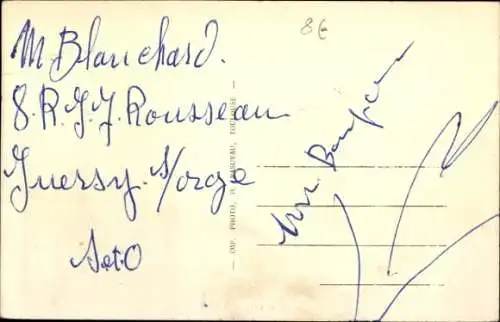 8€
M. Blanchard.
8. R. J. J. Rousseau
Juvisy. S/orge
SetO
IMP. PHOTO,
TOULOUSE
Un Bonjour